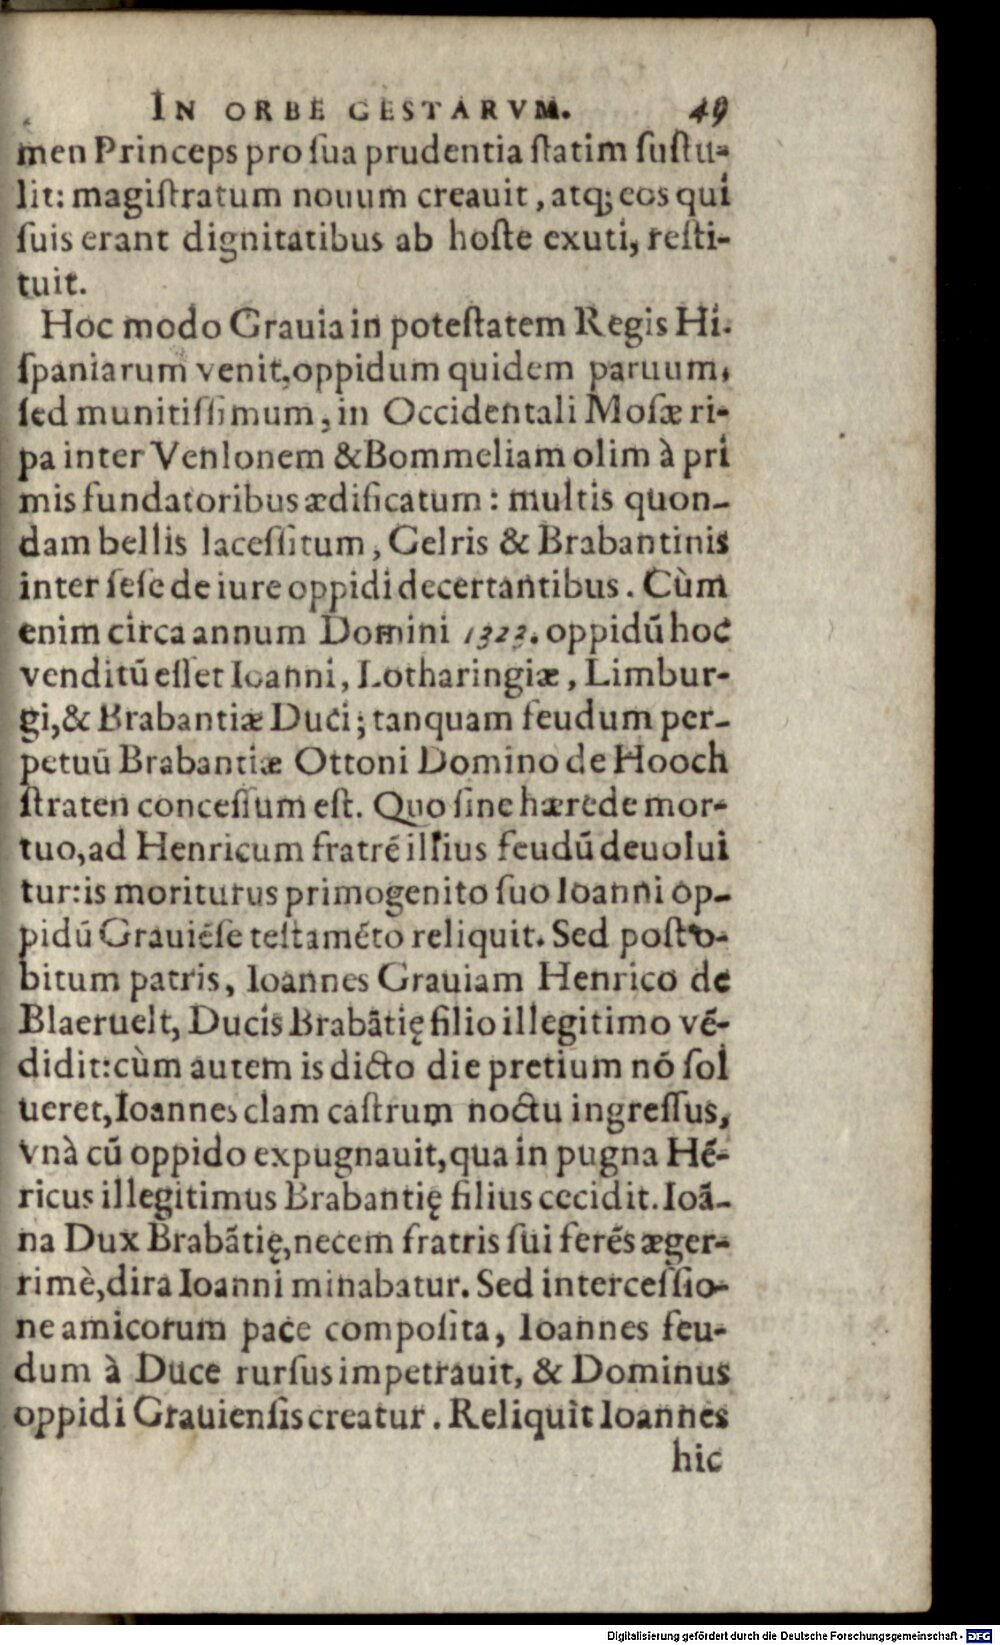 IN ORBE GESTARVM. 49
men Princeps pro ſua prudentia ſtatim ſuſtu-
lit: magiſtratum nouum creauit, atq; eos qui
ſuis erant dignitatibus ab hoſte exuti, reſti-
tuit.
Hoc modo Grauia in poteſtatem Regis Hi.
ſpaniarum venit, oppidum quidem paruum,
ſed munitiſſimum, in Occidentali Moſæ ri-
pa inter Venlonem & Bommeliam olim à pri
mis fundatoribus ædificatum: multis quon-
dam bellis laceſſitum, Gelris & Brabantinis
inter ſeſe de iure oppidi decertantibus. Cùm
enim circa annum Domini 1323. oppidū hoc
venditū eſſet Ioanni, Lotharingiæ, Limbur-
gi, & Brabantiæ Duci; tanquam feudum per-
petuū Brabantiæ Ottoni Domino de Hooch
ſtraten conceſſum eſt. Quo ſine hærede mor-
tuo, ad Henricum fratrē illius feudū deuolui
tur: is moriturus primogenito ſuo Ioanni op-
pidū Grauiēſe teſtamēto reliquit. Sed poſt o-
bitum patris, Ioannes Grauiam Henrico de
Blaeruelt, Ducis Brabātię filio illegitimo vē-
didit: cùm autem is dicto die pretium nō ſol
ueret, Ioannes clam caſtrum noctu ingreſſus,
vnà cū oppido expugnauit, qua in pugna Hē-
ricus illegitimus Brabantię filius cecidit. Ioā-
na Dux Brabātię, necem fratris ſui ferēs æger-
rimè, dira Ioanni minabatur. Sed interceſſio-
ne amicorum pace compoſita, Ioannes feu-
dum à Duce rurſus impetrauit, & Dominus
oppidi Grauienſis creatur. Reliquit Ioannes
hic
Digitalisierung gefördert durch die Deutsche Forschungsgemeinschaft - DFG